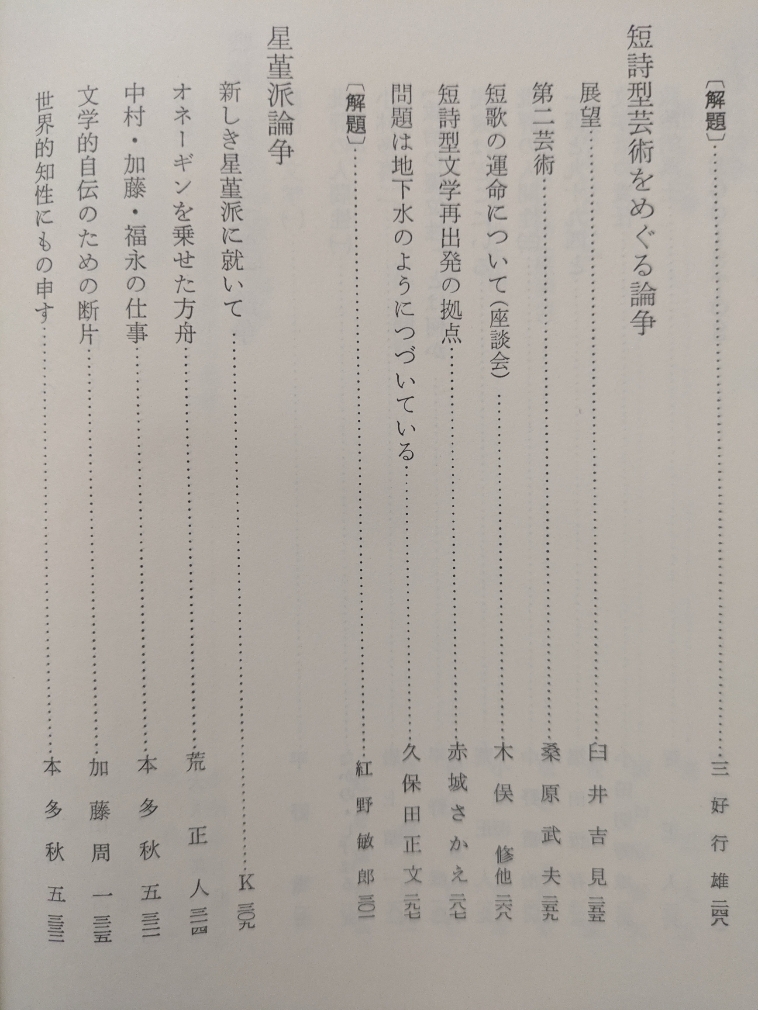 〔解題〕……三好行雄 二四八
短詩型芸術をめぐる論争
展望……臼井吉見 二五五
第二芸術……桑原武夫 二五九
短歌の運命について(座談会)……木俣修他 二六八
短詩型文学再出発の拠点……赤城さかえ 二八七
問題は地下水のようにつづいている……久保田正文 二九七
〔解題〕……紅野敏郎 三〇一
星菫派論争
新しき星菫派に就いて……K 三〇九
オネーギンを乗せた方舟……荒正人 三一四
中村・加藤・福永の仕事……本多秋五 三二一
文学的自伝のための断片……加藤周一 三二五
世界的知性にもの申す……本多秋五 三三二